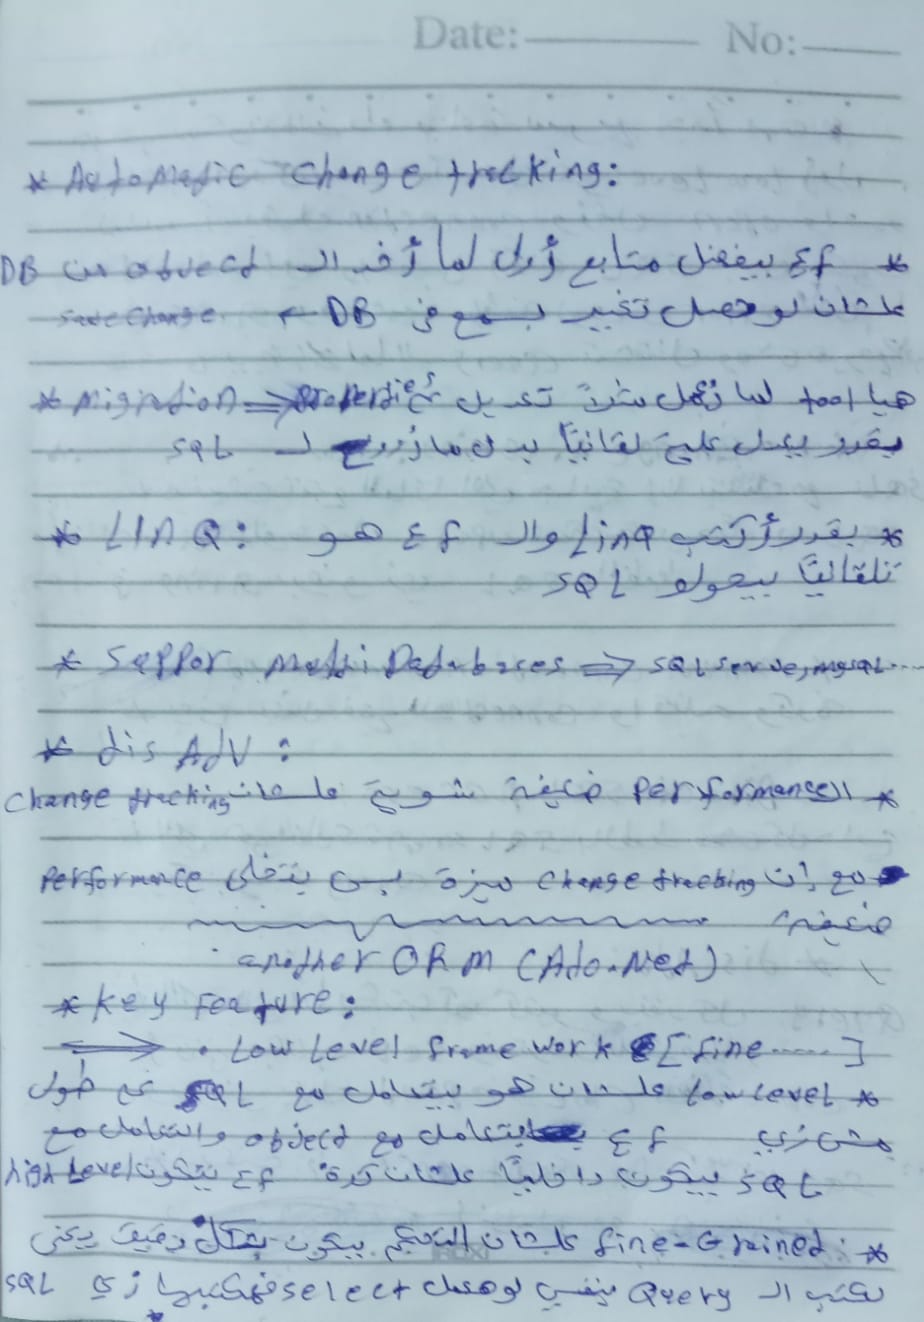 Date: No:
* Automatic change tracking:
* ef بيفضل متابع أول لما أخد الـ object من DB
علشان لو حصل تغير يسمع في DB ← save change
* Migration => Properties هيا tool لما نعمل تعديل
يقدر يعدل عليه تلقائياً بدل ما أروح لـ SQL
* LINQ: * بقدر أكتب Linq والـ ef هو
تلقائياً بيحولو SQL
* Suppor multi Databases => SQL serve, mysql ....
* dis Adv:
* الـ performance ضعيفة شوية علشان change tracking
مع إن change tracking ميزة بس بتخلى performance
ضعيفة
another ORM (Ado.Net)
* Key Feature:
=> • Low Level frame work [fine ......]
* Low Level علشان هو بيتعامل مع SQL على طول
مش زي ef بيتعامل مع object والتعامل مع
SQL بيكون داخلياً علشان كدة ef بتكون high Level
* fine-Grained: علشان التحكم بيكون بشكل دقيق يعني
بكتب الـ Query بنفسي لو هعمل select هكتبها زي SQL